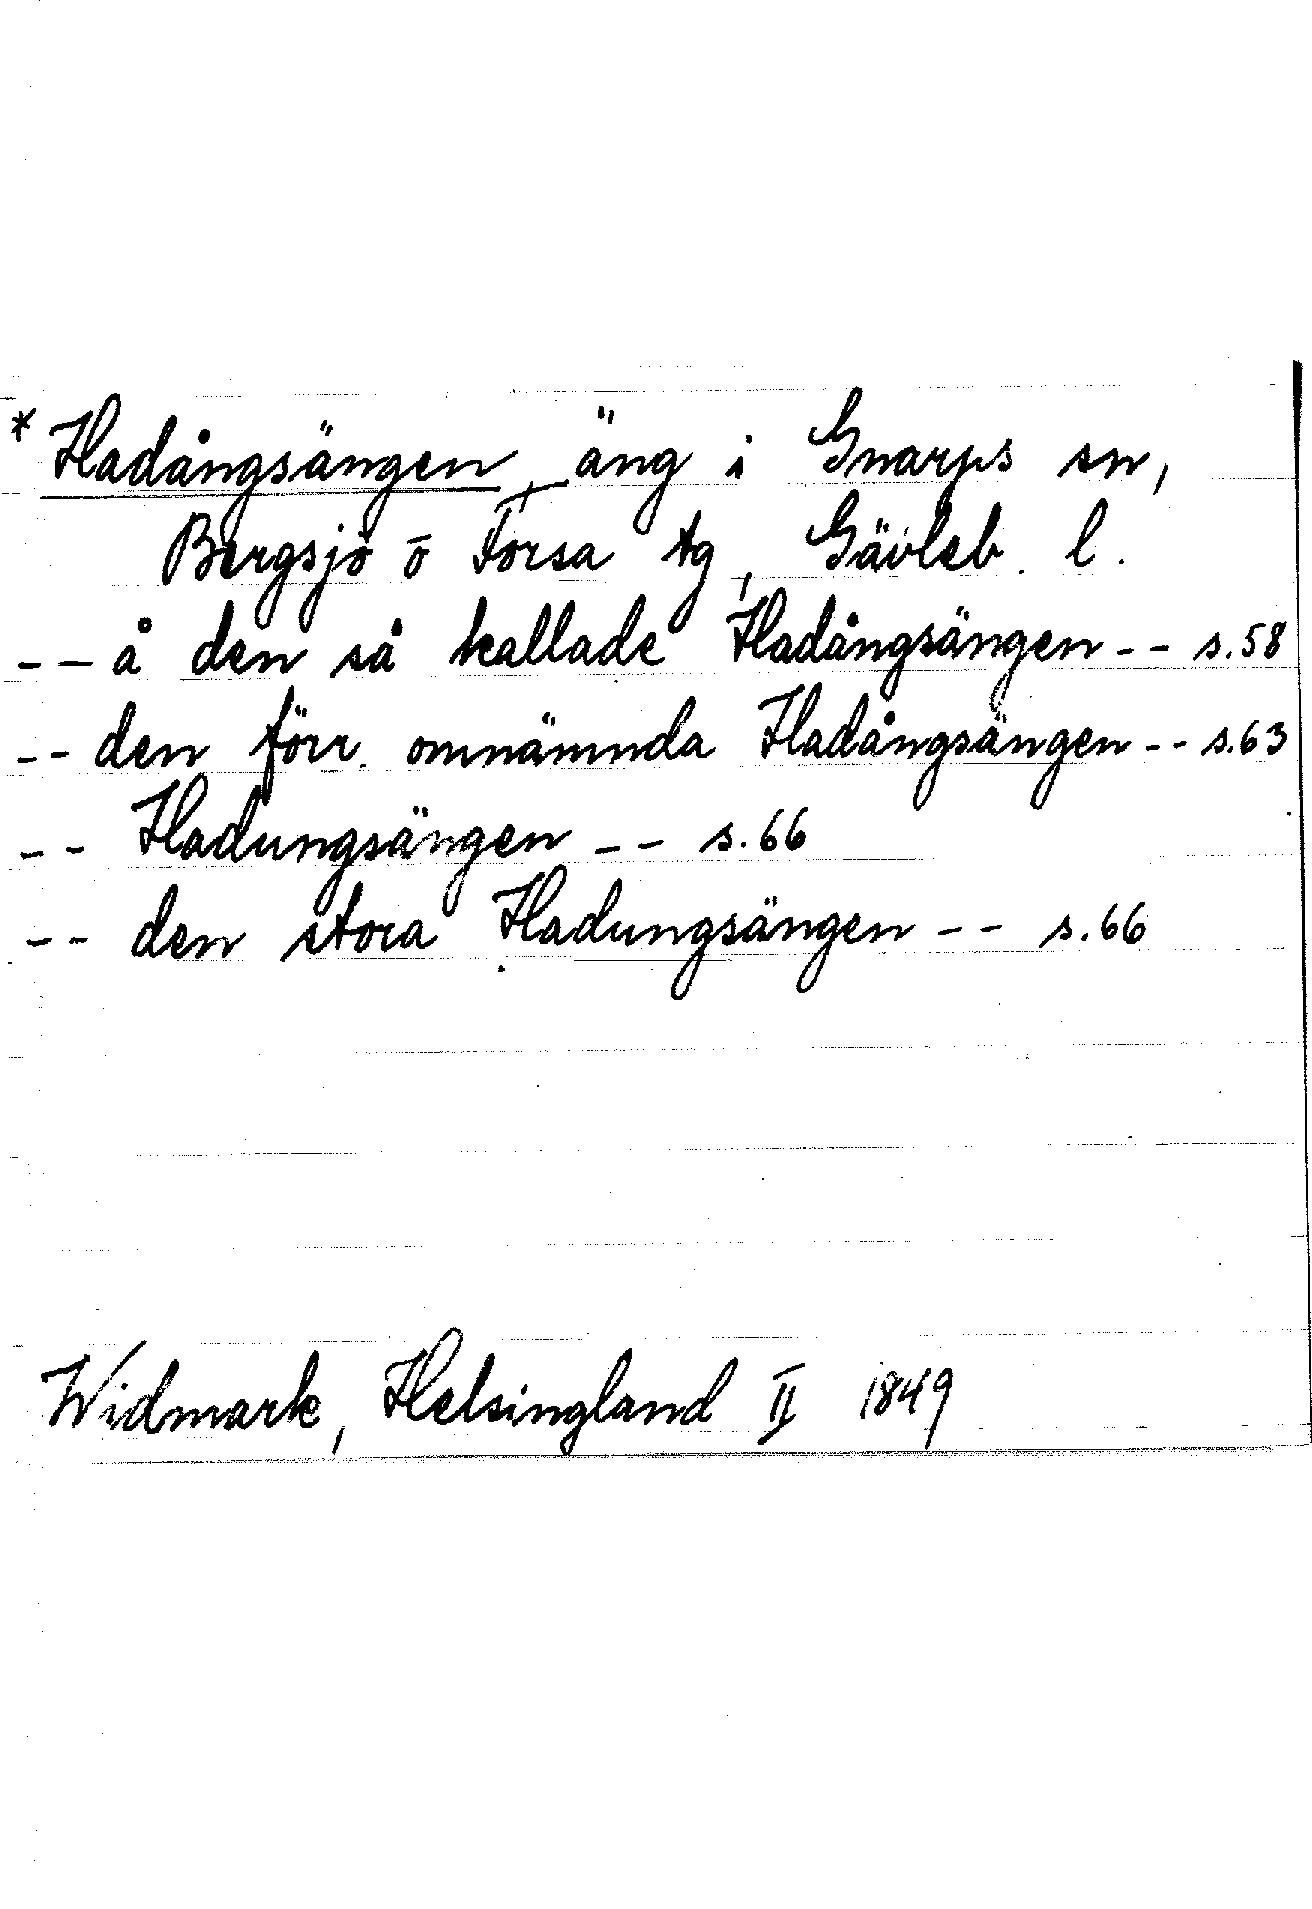 * Hadångsängen, äng i Gnarps sn,
Bergsjö o Forsa tg, Gävleb. l.
-- å den så kallade Hadångsängen -- s. 58
-- den förr. omnämnda Hadångsängen -- s. 63
-- Hadungsängen -- s. 66
-- den stora Hadungsängen -- s. 66
Widmark, Helsingland II 1849